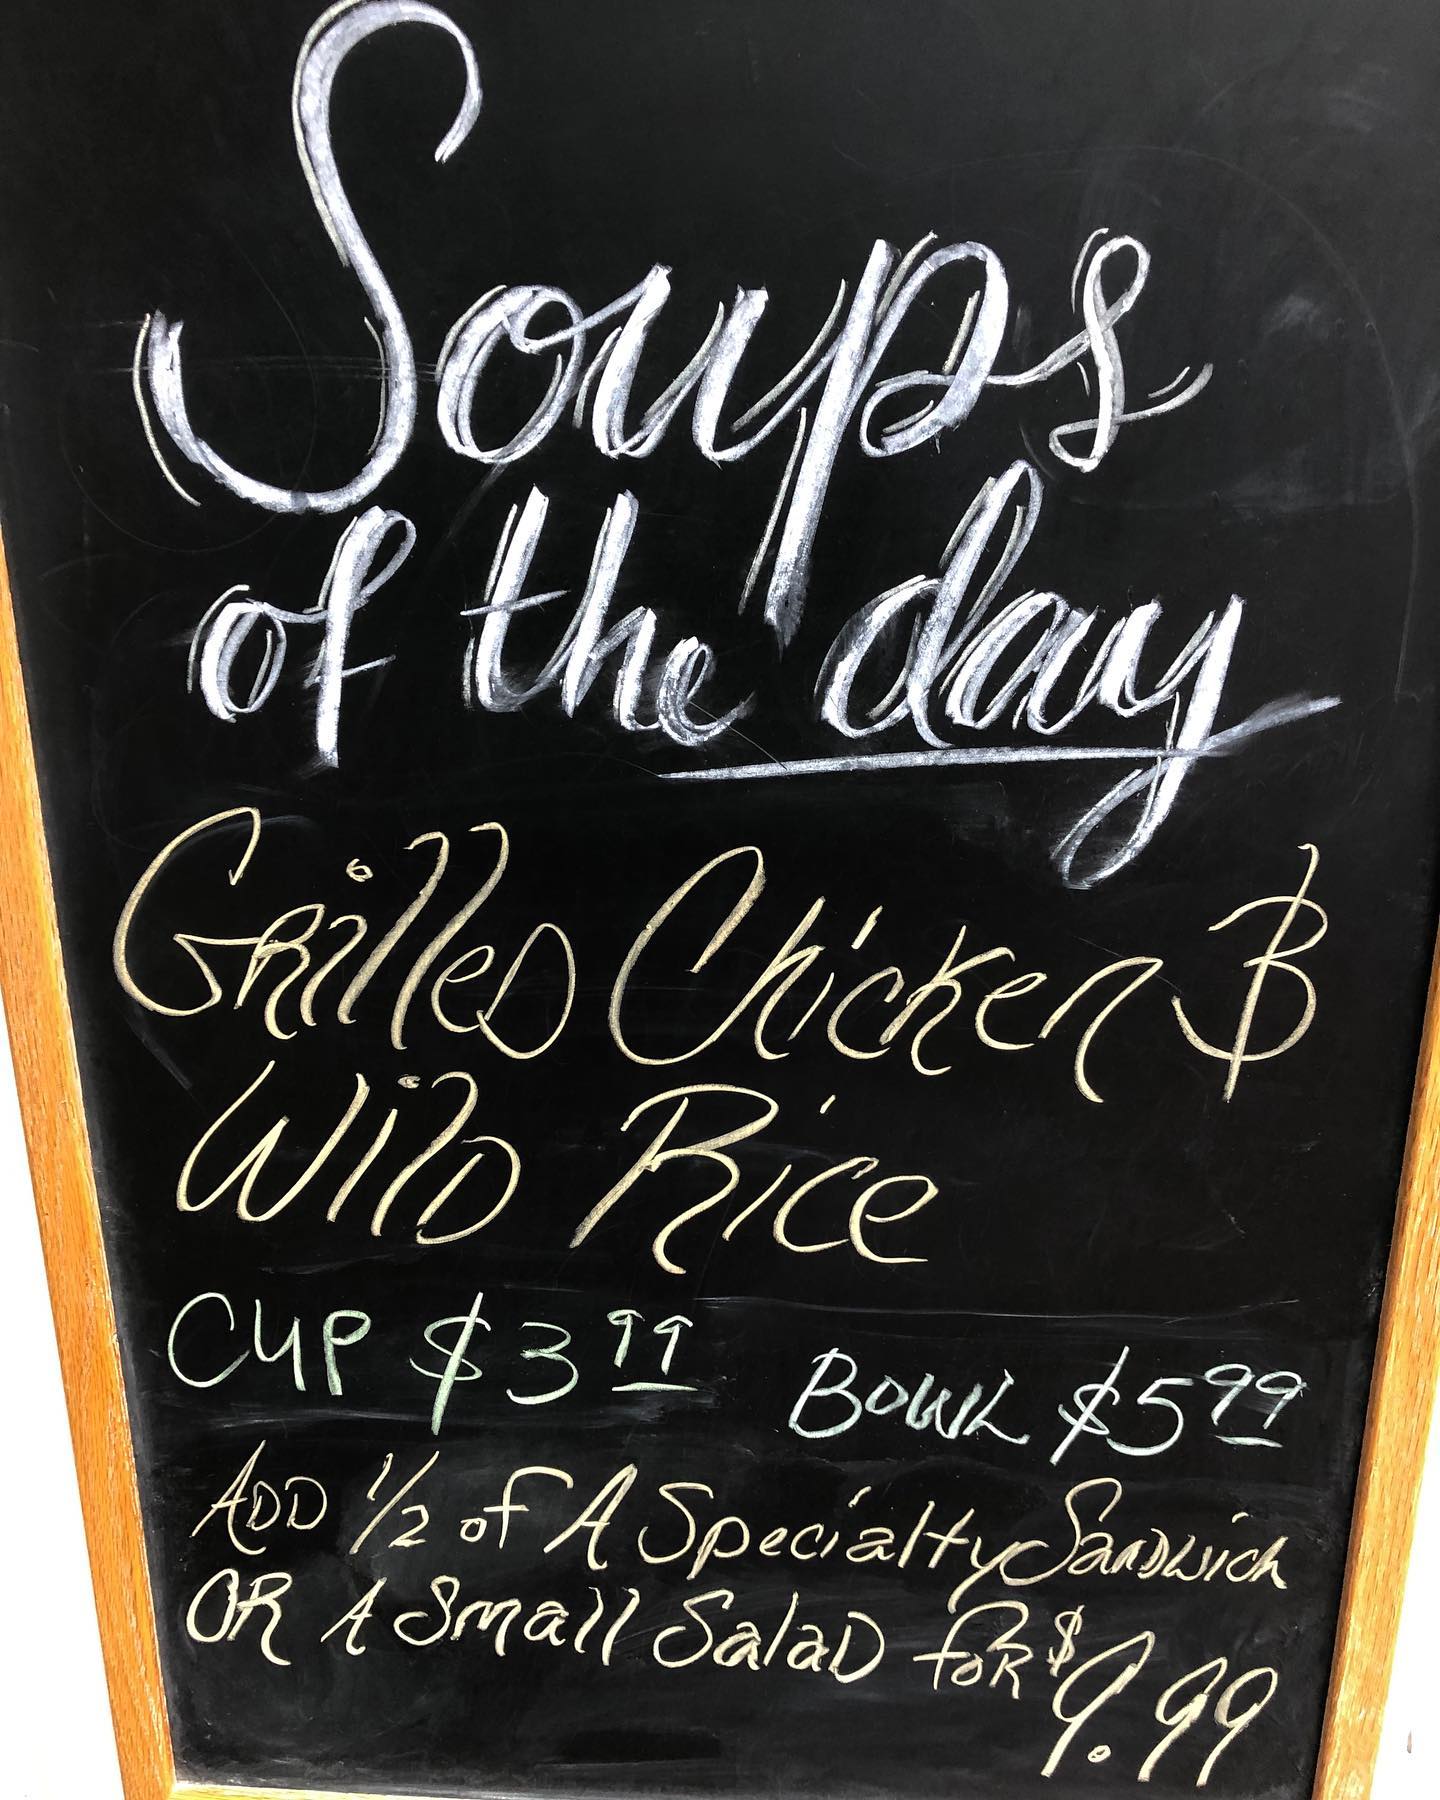 Soups
of the day
Grilled Chicken &
Wild Rice
CUP $3.99 BOWL $5.99
ADD 1/2 of A Specialty Sandwich
OR A Small Salad for $9.99